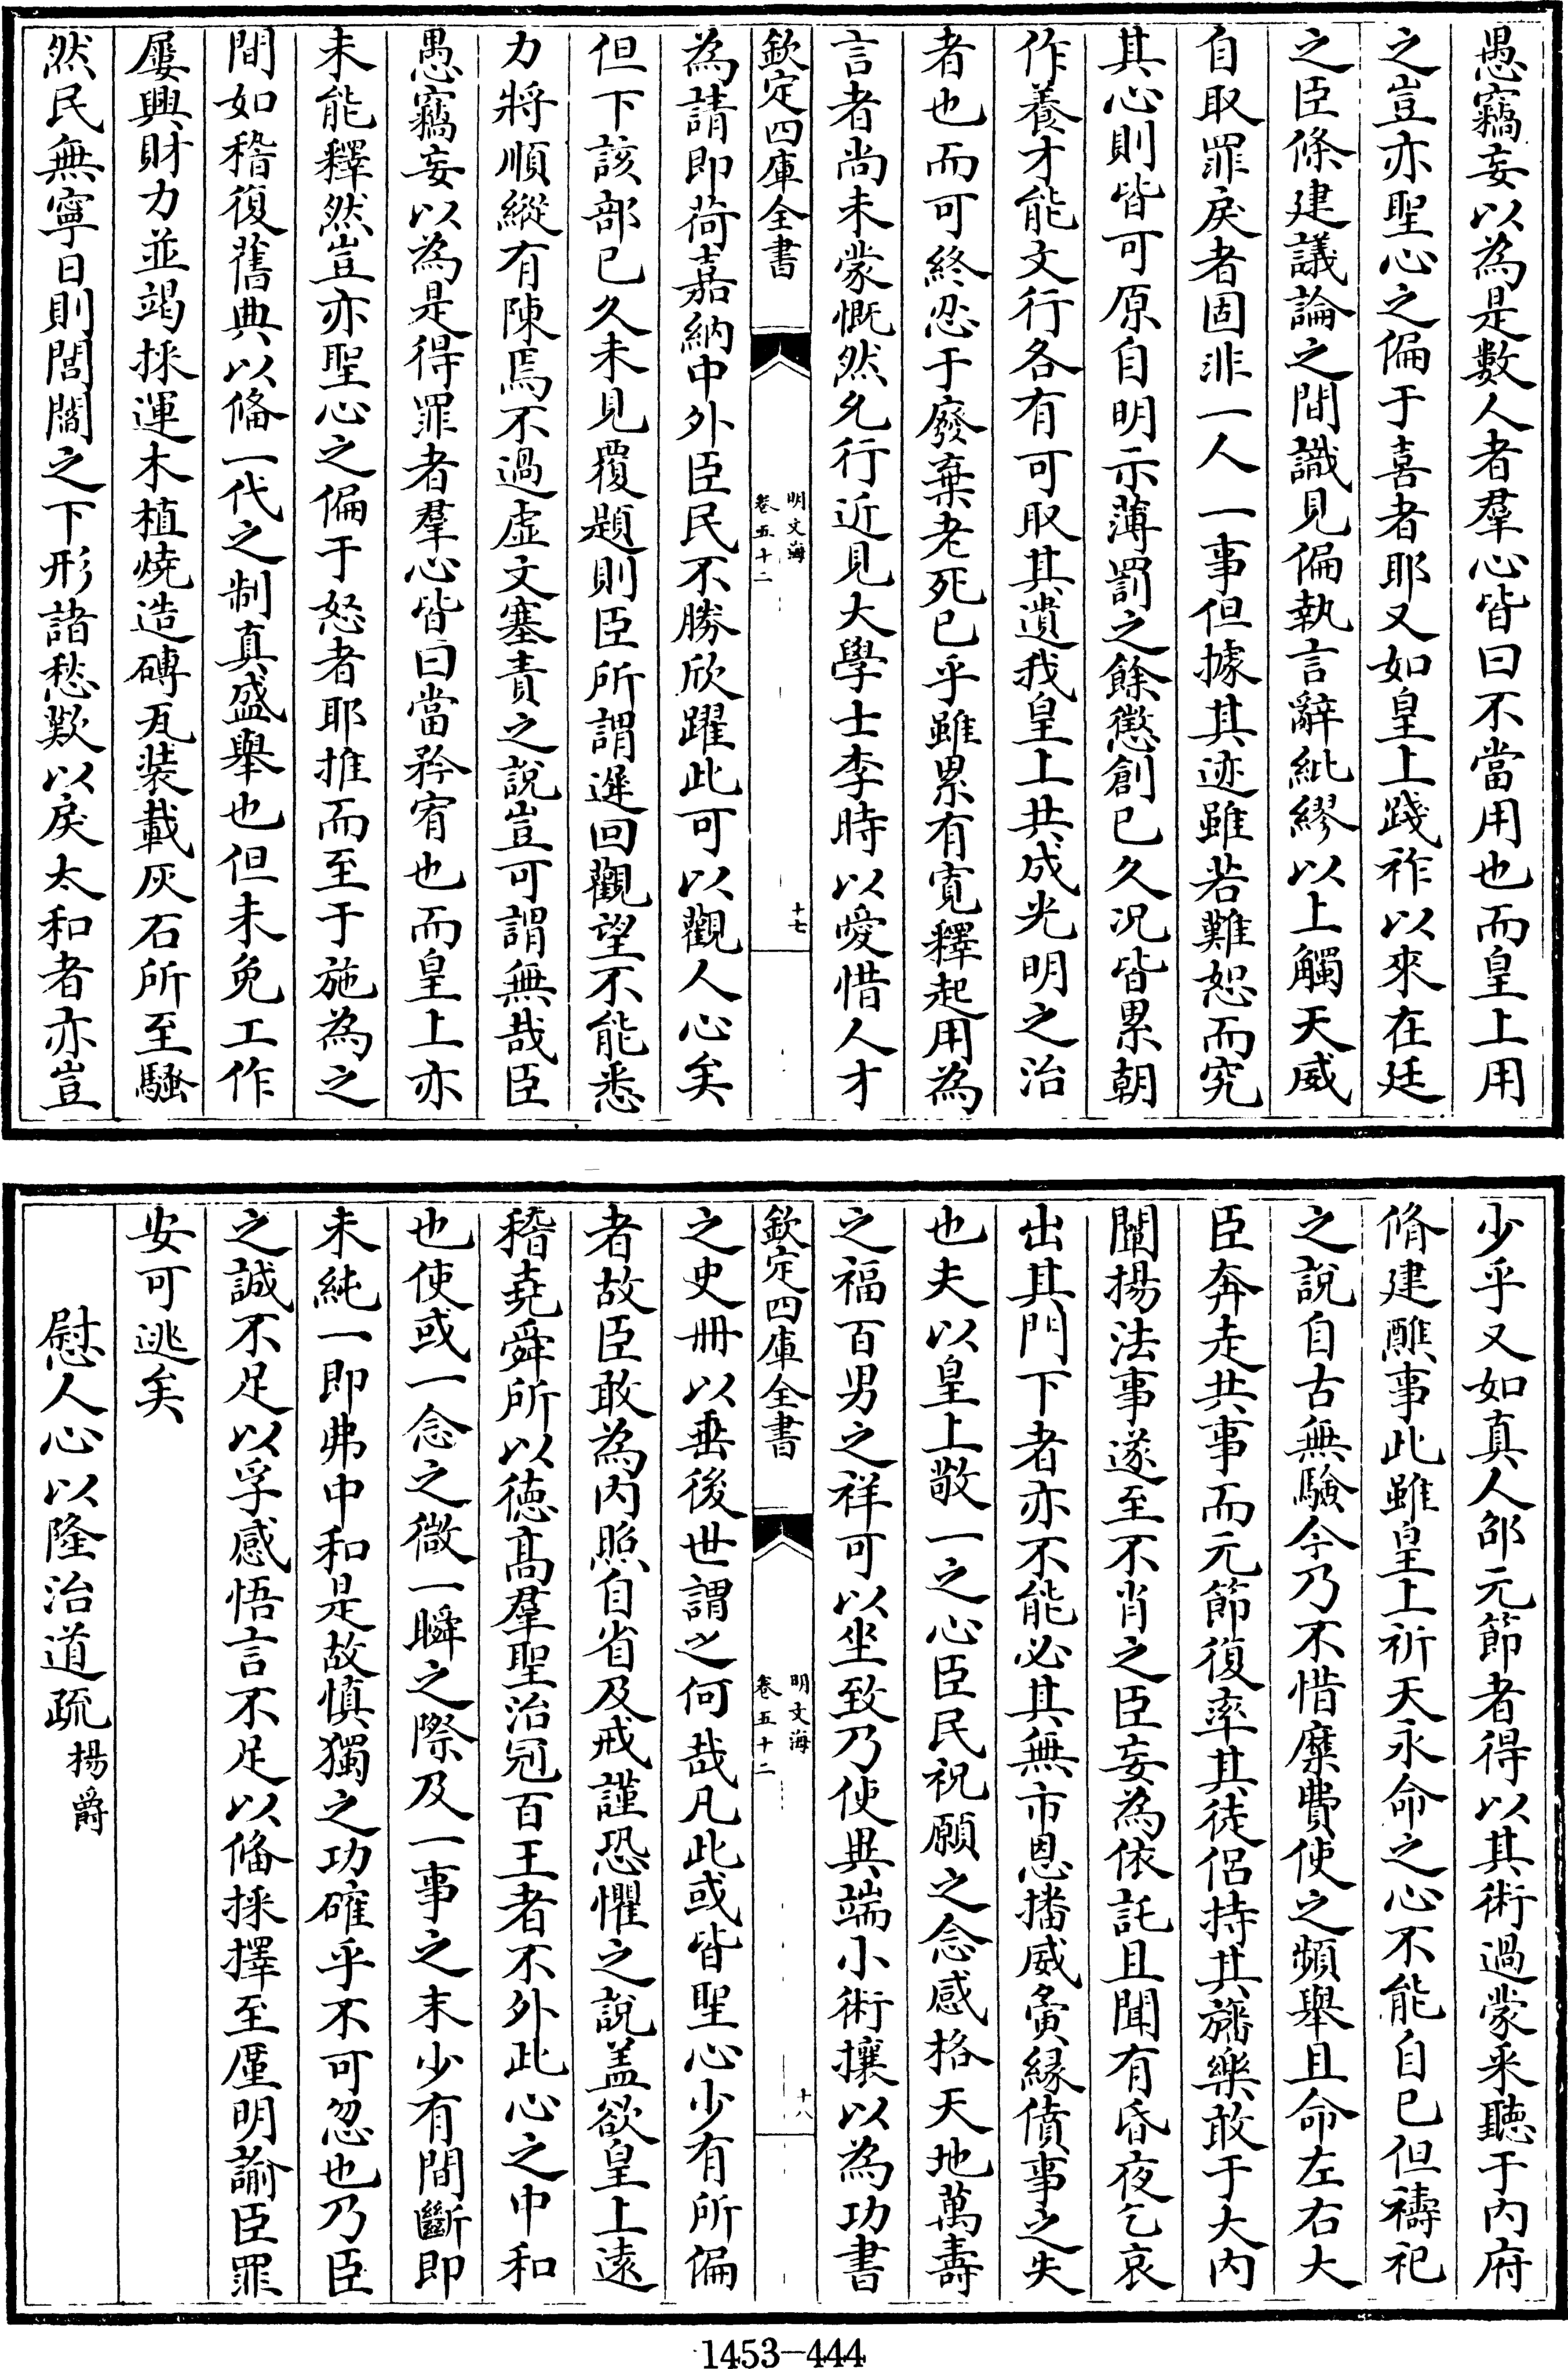 愚竊妄以為是數人者羣心皆曰不當用也而皇上用
之豈亦聖心之偏于喜者耶又如皇上踐祚以來在廷
之臣條建議論之間識見偏執言辭紕繆以上觸天威
自取罪戾者固非一人一事但據其迹雖若難恕而究
其心則皆可原自明示薄罰之餘懲創已久况皆累朝
作養才能文行各有可取其遺我皇上共成光明之治
者也而可終忍于廢棄老死已乎雖累有寛釋起用為
言者尚未蒙慨然允行近見大學士李時以愛惜人才
欽定四庫全書
明文海
卷五十二
十七
為請即荷嘉納中外臣民不勝欣躍此可以觀人心矣
但下該部已久未見覆題則臣所謂遲回觀望不能悉
力將順縱有陳焉不過虚文塞責之說豈可謂無哉臣
愚竊妄以為是得罪者羣心皆曰當矜宥也而皇上亦
未能釋然豈亦聖心之偏于怒者耶推而至于施為之
間如稽復舊典以備一代之制真盛舉也但未免工作
屢興財力並竭採運木植燒造磚瓦裝載灰石所至騷
然民無寧日則閭閻之下形諸愁歎以戾太和者亦豈
少乎又如真人邵元節者得以其術過蒙采聽于内府
脩建醮事此雖皇上祈天永命之心不能自已但禱祀
之說自古無驗今乃不惜糜費使之頻舉且命左右大
臣奔走共事而元節復率其徒侣持其旛樂敢于大内
闡揚法事遂至不肖之臣妄為依託且聞有昏夜乞哀
出其門下者亦不能必其無市恩播威夤縁僨事之失
也夫以皇上敬一之心臣民祝願之念感格天地萬壽
之福百男之祥可以坐致乃使異端小術攘以為功書
欽定四庫全書
明文海
卷五十二
十八
之史冊以垂後世謂之何哉凡此或皆聖心少有所偏
者故臣敢為内照自省及戒謹恐懼之說盖欲皇上遠
稽堯舜所以德髙羣聖治冠百王者不外此心之中和
也使或一念之微一瞬之際及一事之末少有間斷即
未純一即弗中和是故慎獨之功確乎不可忽也乃臣
之誠不足以孚感悟言不足以備採擇至廑明諭臣罪
安可逃矣
慰人心以隆治道疏 楊爵
1453-444